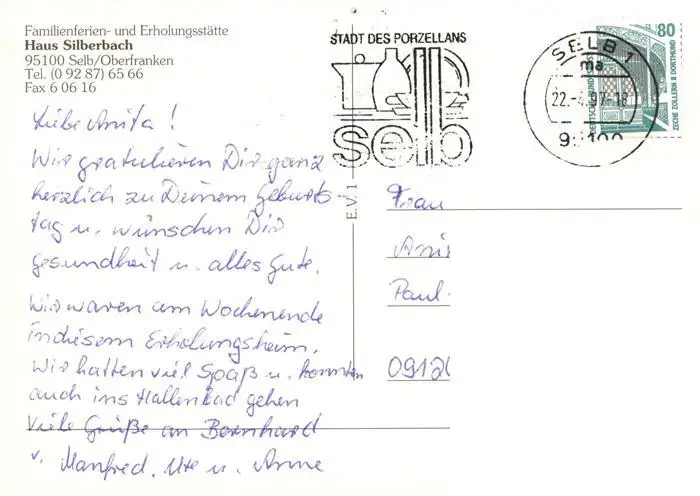 Familienferien- und Erholungsstätte
Haus Silberbach
95100 Selb/Oberfranken
Tel. (0 92 87) 65 66
Fax 6 06 16
STADT DES PORZELLANS
selb
SELB 1
ma
22.-4.97-18
95100
80
DEUTSCHE BUNDESPOST
ZECHE ZOLLERN II DORTMUND
E.V. 1
Liebe Anita!
Wir gratulieren Dir ganz
herzlich zu Deinem Geburts-
tag u. wünschen Dir
Gesundheit u. alles Gute.
Wir waren am Wochenende
in diesem Erholungsheim.
Wir hatten viel Spaß u. konnten
auch ins Hallenbad gehen
Viele Grüße an Bernhard
v. Manfred, Ute u. Anne
Frau
Ani
Paul
0912